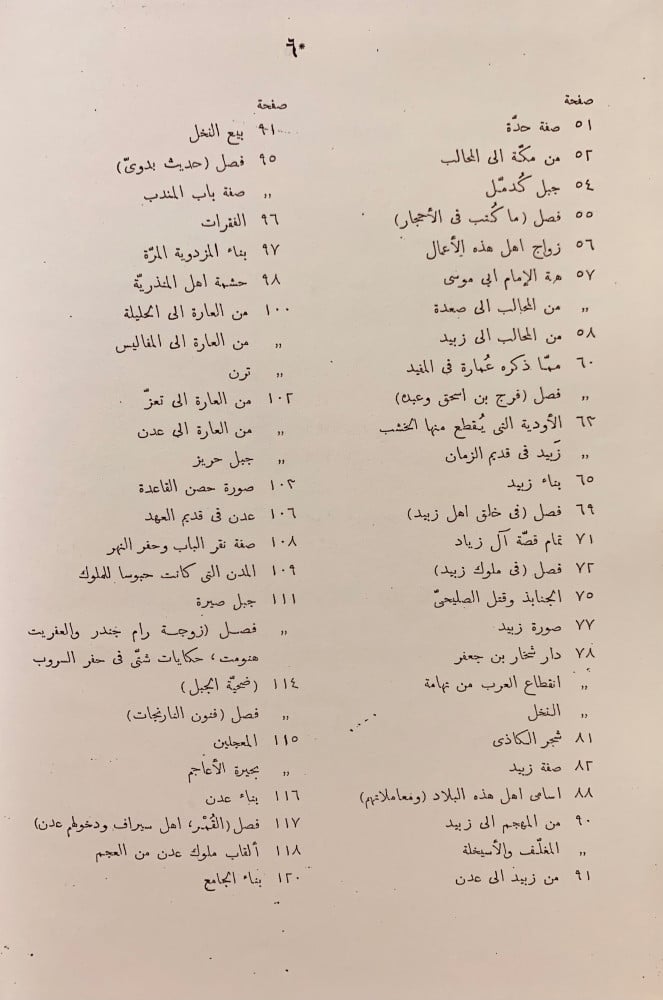 ٦٠
صفحة
٥١ صفة حدّة
٥٢ من مكّة الى المحالب
٥٤ جبل كُدمّل
٥٥ فصل (ما كُتب فى الأحجار)
٥٦ زواج اهل هذه الأعمال
٥٧ هبة الإمام ابى موسى
„ من المحالب الى صعدة
٥٨ من المحالب الى زبيد
٦٠ ممّا ذكره عُمارة فى المفيد
„ فصل (فرج بن اسحق وعبده)
٦٣ الأودية التى يُقطع منها الخشب
„ زَبيد فى قديم الزمان
٦٥ بناء زبيد
٦٩ فصل (فى خلق اهل زبيد)
٧١ تمام قصّة آل زياد
٧٢ فصل (فى ملوك زبيد)
٧٥ الجنابذ وقتل الصليحىّ
٧٧ صورة زبيد
٧٨ دار شخار بن جعفر
„ انقطاع العرب من تهامة
„ النخل
٨١ شجر الكاذى
٨٢ صفة زبيد
٨٨ اسامى اهل هذه البلاد (ومعاملاتهم)
٩٠ من المهجم الى زبيد
„ المغلّف والأسيخلة
٩١ من زبيد الى عدن
صفحة
٩١ بيع النخل
٩٥ فصل (حديث بدوىّ)
„ صفة باب المندب
٩٦ الفقرات
٩٧ بناء المزدوية المرّة
٩٨ حشمة اهل المنذريّة
١٠٠ من العارة الى الحليلة
„ من العارة الى المفاليس
„ ترن
١٠٢ من العارة الى تعزّ
„ من العارة الى عدن
„ جبل حريز
١٠٣ صورة حصن القاعدة
١٠٦ عدن فى قديم العهد
١٠٨ صفة نقر الباب وحفر النهر
١٠٩ المدن التى كانت حبوسا للملوك
١١١ جبل صيرة
„ فصل (زوجة رام جندر والعفريت
هنومت، حكايات شتّى فى حفر السروب
١١٤ (ضحيّة الجبل)
„ فصل (فنون النارنجات)
١١٥ المعجلين
„ بحيرة الأعاجم
١١٦ بناء عدن
١١٧ فصل (القُمْر، اهل سيراف ودخولهم عدن)
١١٨ ألقاب ملوك عدن من العجم
١٢٠ بناء الجامع